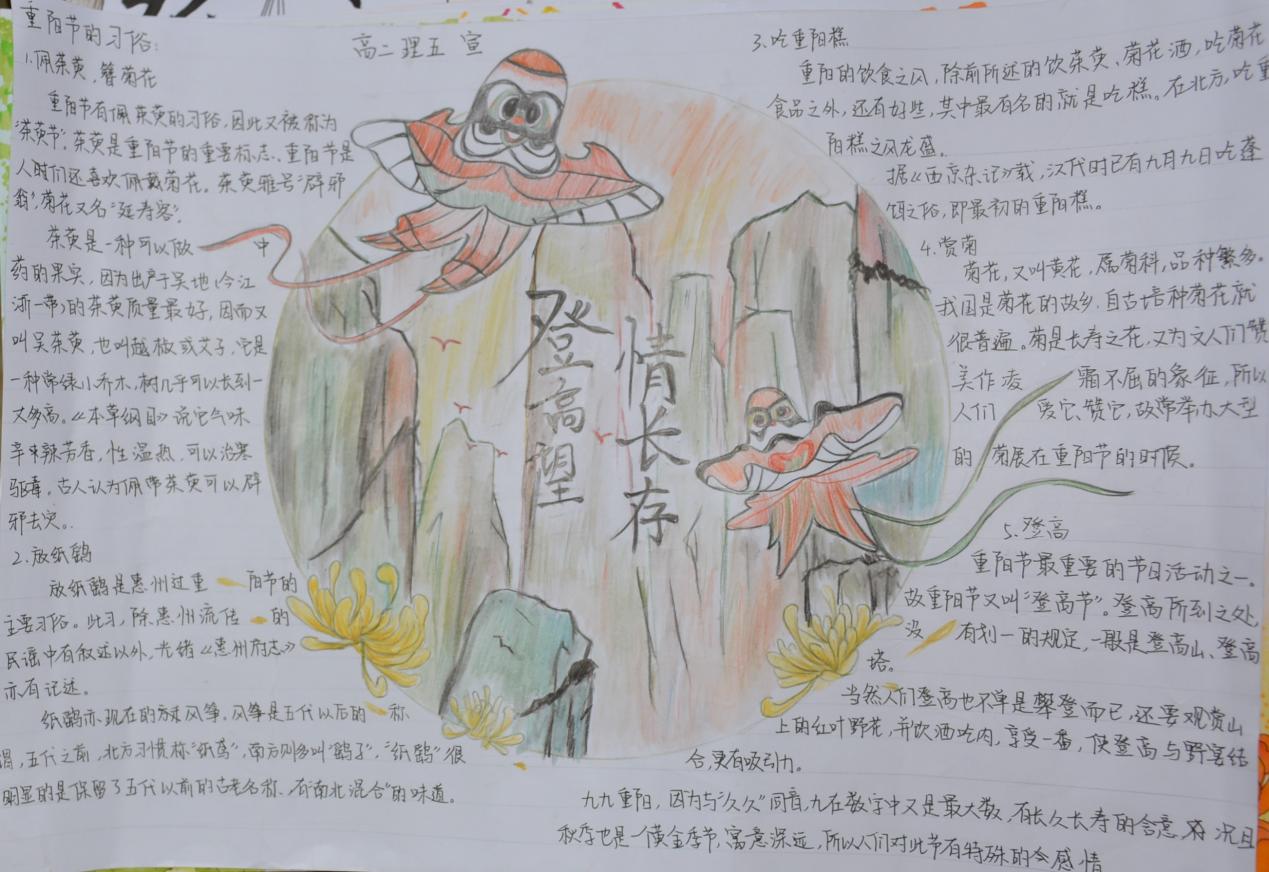 重阳节的习俗:
1.佩茱萸,簪菊花
重阳节有佩茱萸的习俗,因此又被称为
"茱萸节"。茱萸是重阳节的重要标志。重阳节是
人时们还喜欢佩戴菊花。茱萸雅号"辟邪
翁",菊花又名"延寿客"。
茱萸是一种可以做 中
药的果实,因为出产于吴地(今江
浙一带)的茱萸质量最好,因而又
叫吴茱萸,也叫越椒或艾子,它是
一种常绿小乔木,树几乎可以长到一
丈多高。《本草纲目》说它气味
辛辣芳香,性温热,可以治寒
驱毒。古人认为佩带茱萸可以辟
邪去灾。
2.放纸鹞
放纸鹞是惠州过重 阳节的
主要习俗。此习,除惠州流传 的
民谣中有叙述以外,光绪《惠州府志》
亦有记述。
纸鹞亦现在的放风筝。风筝是五代以后的 称
谓,五代之前,北方习惯称"纸鸢",南方则多叫"鹞子","纸鹞"很
明显的是保留了五代以前的古老名称、有"南北混合"的味道。
高二理五 宣
登高望
情长存
3.吃重阳糕
重阳的饮食之风,除前所述的饮茱萸、菊花酒,吃菊花
食品之外,还有好些,其中最有名的就是吃糕。在北方,吃重
阳糕之风龙盛。
据《西京杂记》载,汉代时已有九月九日吃蓬
饵之俗,即最初的重阳糕。
4.赏菊
菊花,又叫黄花,属菊科,品种繁多。
我国是菊花的故乡,自古培种菊花就
很普遍。菊是长寿之花,又为文人们赞
美作凌 霜不屈的象征,所以
人们 爱它、赞它,故常举办大型
的 菊展在重阳节的时候。
5.登高
重阳节最重要的节日活动之一。
故重阳节又叫"登高节"。登高所到之处,
没 有划一的规定,一般是登高山、登高
塔。
当然人们登高也不单是攀登而已,还要观赏山
上的红叶野花,并饮酒吃肉,享受一番,使登高与野宴结
合,更有吸引力。
九九重阳,因为与"久久"同音,九在数字中又是最大数,有长久长寿的含意,况且
秋季也是一黄金季节,寓意深远,所以人们对此节有特殊的感情